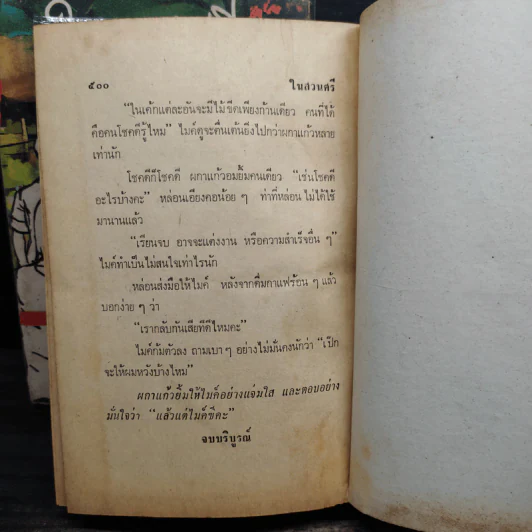 ๕๐๐ ในสวนศรี
“ในเค้กแต่ละอันจะมีไม้ขีดเพียงก้านเดียว คนที่ได้
คือคนโชคดีรู้ไหม” ไมค์ดูจะตื่นเต้นยิ่งไปกว่าผกาแก้วหลาย
เท่านัก
โชคดีก็โชคดี ผกาแก้วอมยิ้มคนเดียว “เช่นโชคดี
อะไรบ้างคะ” หล่อนเอียงคอน้อย ๆ ท่าที่หล่อนไม่ได้ใช้
มานานแล้ว
“เรียนจบ อาจจะแต่งงาน หรือความสำเร็จอื่น ๆ”
ไมค์ทำเป็นไม่สนใจเท่าไรนัก
หล่อนส่งมือให้ไมค์ หลังจากดื่มกาแฟร้อน ๆ แล้ว
บอกง่าย ๆ ว่า
“เรากลับกันเสียทีดีไหมคะ”
ไมค์ก้มตัวลง ถามเบา ๆ อย่างไม่มั่นคงนักว่า “เป๊ก
จะให้ผมหวังบ้างไหม”
ผกาแก้วยิ้มให้ไมค์อย่างแจ่มใส และตอบอย่าง
มั่นใจว่า “แล้วแต่ไมค์ซิคะ”
จบบริบูรณ์